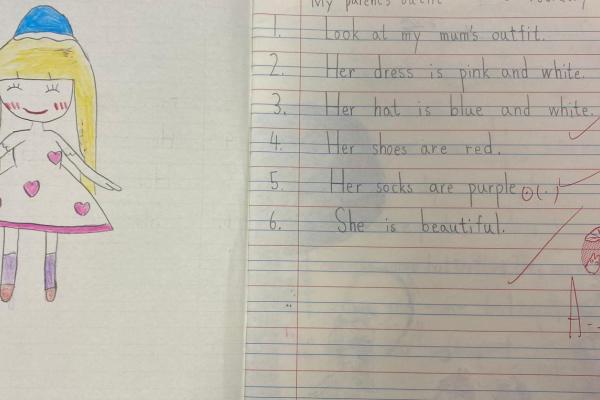 My parent's outfit
1. Look at my mum's outfit.
2. Her dress is pink and white.
3. Her hat is blue and white.
4. Her shoes are red.
5. Her socks are purple (.)
6. She is beautiful.
A-